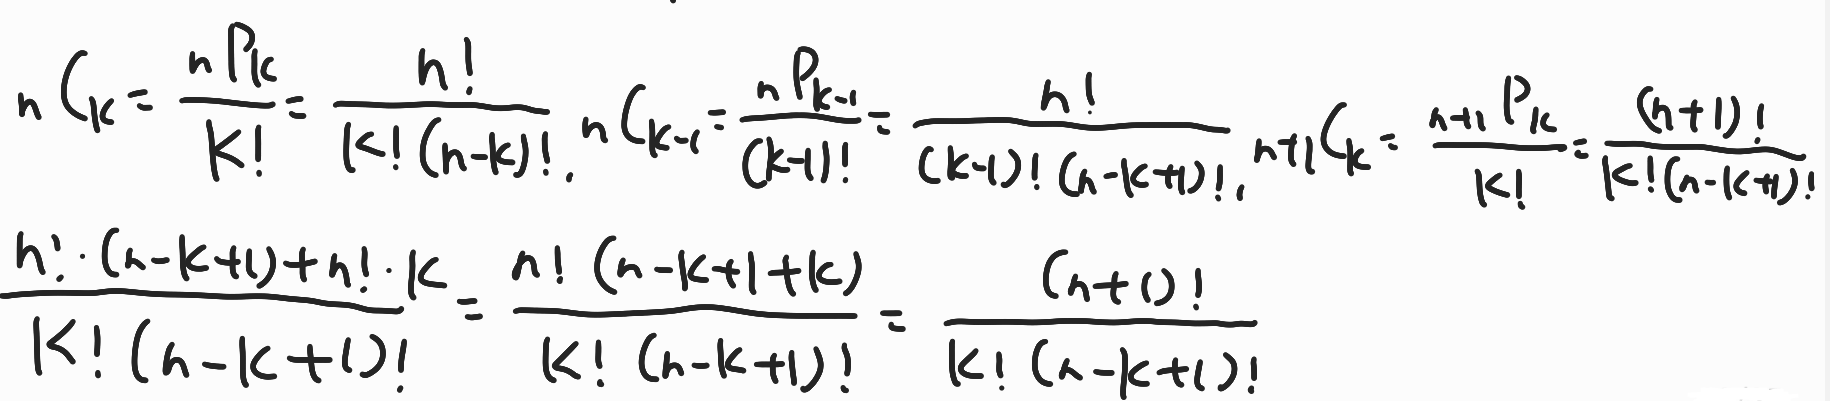 nCk = nPk/k! = n!/(k!(n-k)!), nCk-1 = nPk-1/(k-1)! = n!/((k-1)!(n-k+1)!), n+1Ck = n+1Pk/k! = (n+1)!/(k!(n-k+1)!)
(n!·(n-k+1)+n!·k)/(k!(n-k+1)!) = n!(n-k+1+k)/(k!(n-k+1)!) = (n+1)!/(k!(n-k+1)!)